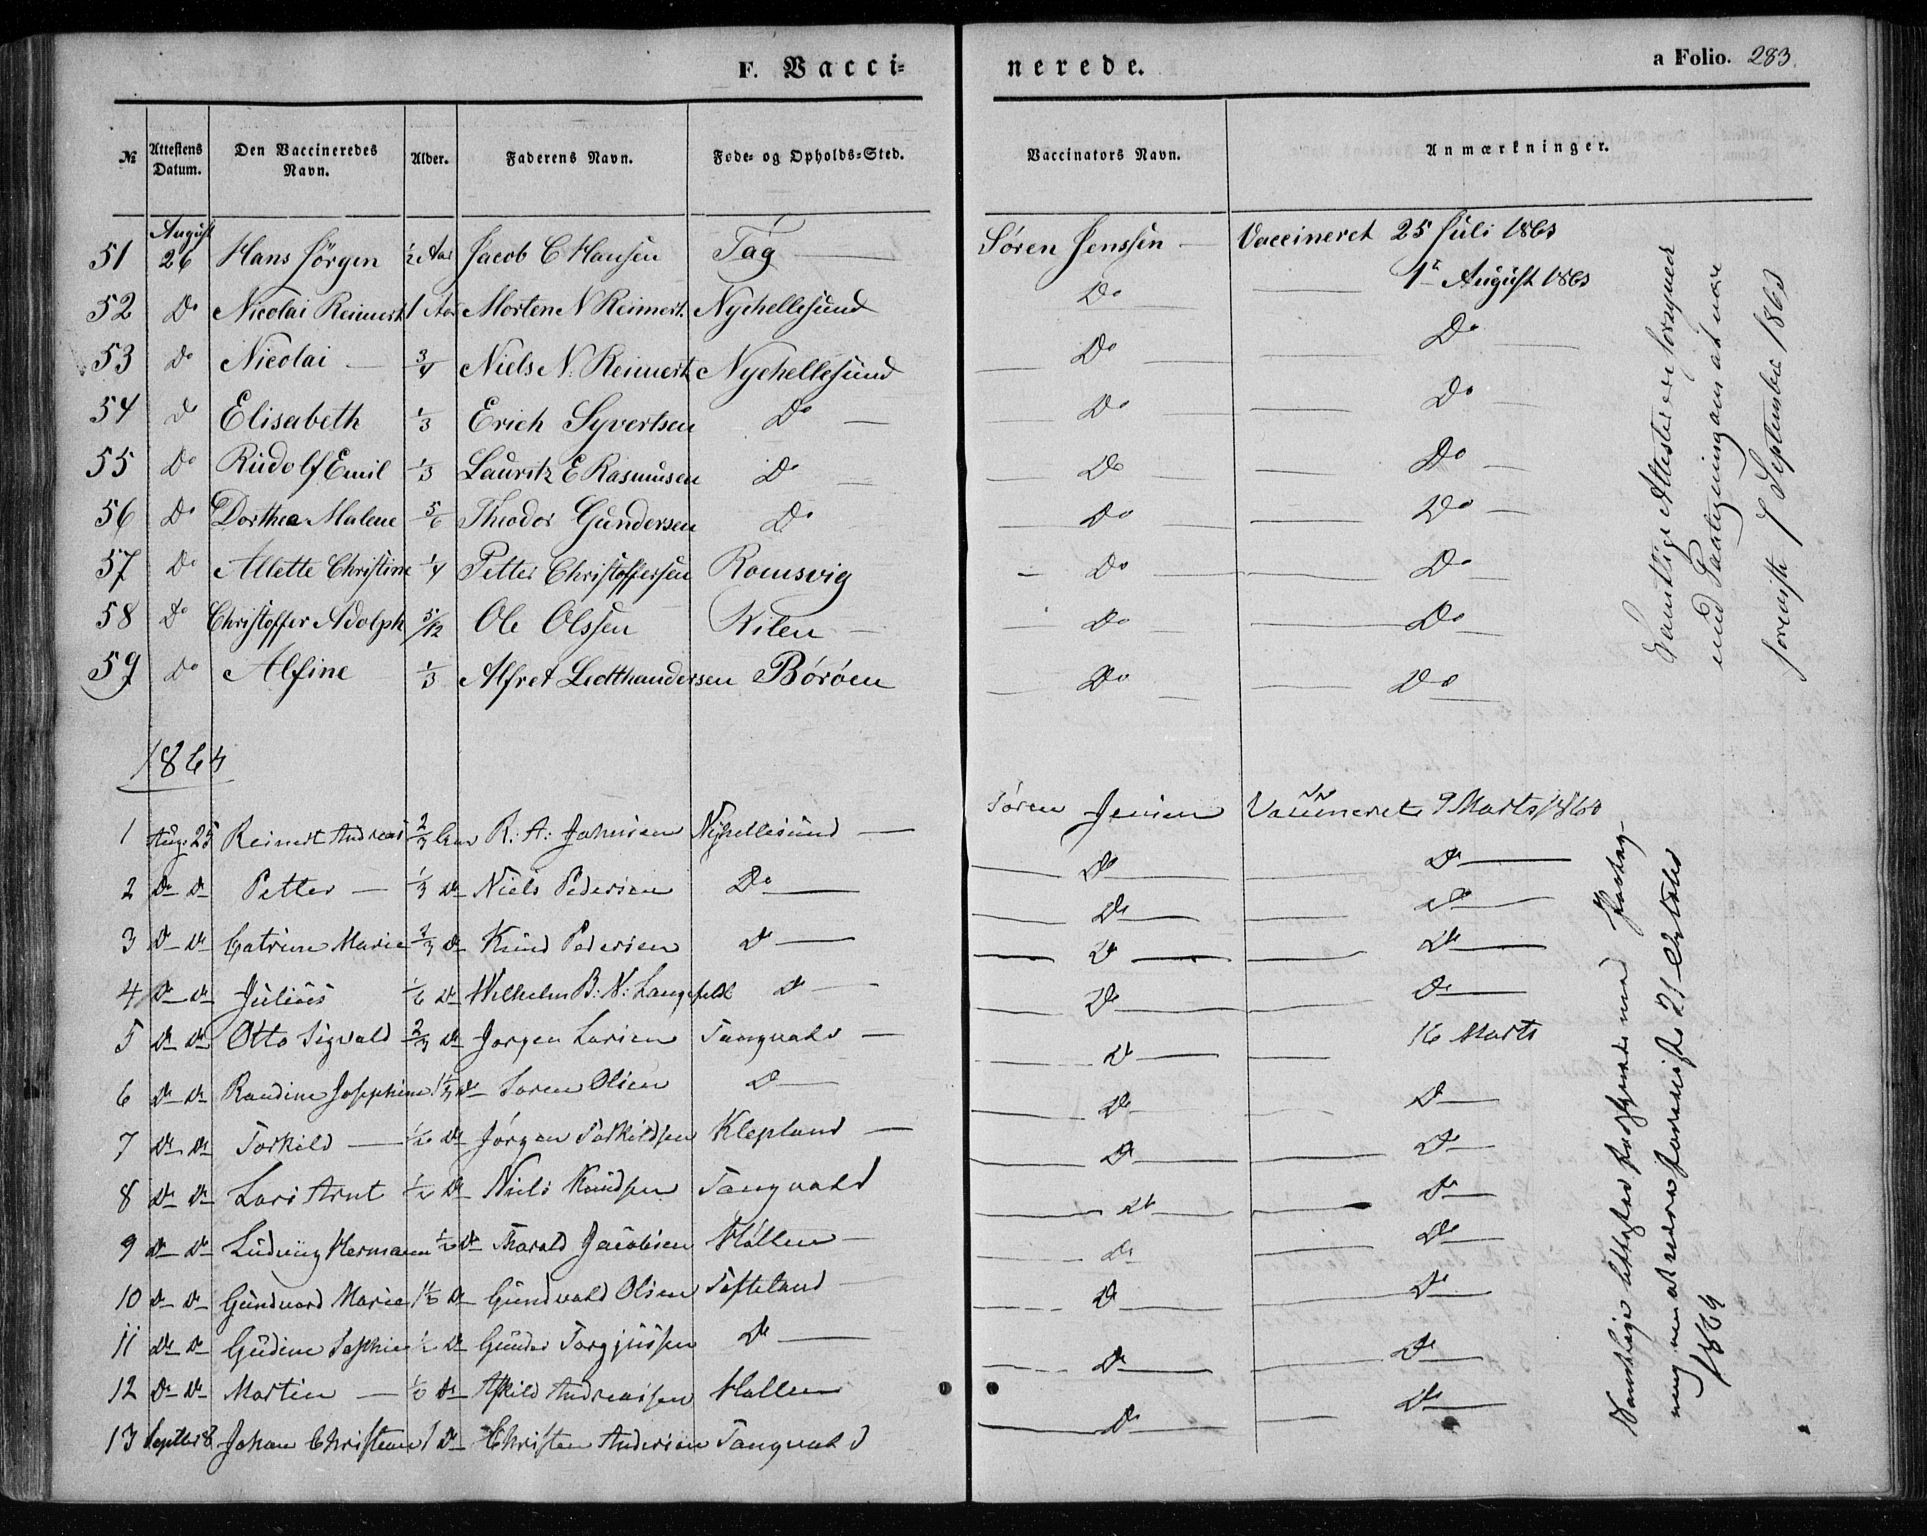 F. Vaccinerede. a Folio. 283.
№ Attestens Datum. Den Vaccineredes Navn. Alder. Faderens Navn. Føde- og Opholds-Sted. Vaccinators Navn. Anmærkninger.
51 August 26 Hans Jörgen ½ Aar Jacob C Hansen Tag — Sören Jenssen — Vaccineret 25 Juli 1863
52 Do Nicolai Reimert 1 Aar Morten N Reimert. Nyhellesund Do — 1e August 1863
53 Do Nicolai — 3/4 Niels N. Reimert Nyhellesund Do — Do
54 Do Elisabeth 1/3 Erich Syvertsen Do — Do — Do
55 Do Rudolf Emil 1/3 Lauritz E Rasmusen Do — Do — Do
56 Do Dorthea Malene 5/6 Theodor Gundersen Do — Do — Do
57 Do Allette Christine 1/4 Petter Christoffersen Romsvig — Do — Do
58 Do Christoffer Adolph 5/12 Ole Olssen Kilen — Do — Do
59 Do Alfine 1/3 Alfret Ledthandersen Böröen Do — Do
Samtlige Attester er forsynet
med Paategning om at være
foreviist 7 September 1863
1864
1 Aug. 25 Reimert Andreas 2/3 Aar R. A. Jahnsen Nyhellesund — Sören Jensen Vaccineret 9 Marts 1864
2 Do Do Petter — 1/3 Do Niels Pedersen Do — Do — Do
3 Do Do Catrine Marie 2/3 Do Knud Pedersen Do — Do — Do
4 Do Do Julius 1/6 Do Wilhelm B. N. Langfeldt Do — Do — Do
5 Do Do Otto Sigvald 2/3 Do Jørgen Larsen Tangvald — Do — Do
6 Do Do Randine Josephine 1 1/3 Do Søren Olsen Do — Do — 16 Marts
7 Do Do Torkild — ½ Do Jørgen Torkildsen Klepland — Do — Do
8 Do Do Lars Arnt ½ Do Niels Knudsen Tangvald Do — Do
9 Do Do Ludvig Hermann ½ Do Tharald Jacobsen Høllen — Do — Do
10 Do Do Gundvord Marie 1½ Do Gundvald Olsen Tofteland — Do — Do
11 Do Do Gudine Sophie ½ Do Gunder Torgjussen Do — Do — Do
12 Do Do Martin — Do Askild Andreassen Høllen Do — Do
13 Septbr 8 Johan Christian 1 Do Christen Andersen Tangvald Do — Do
Samtlige Attester forsynede med Paateg-
ning om at være foreviiste 21 Octobr
1864